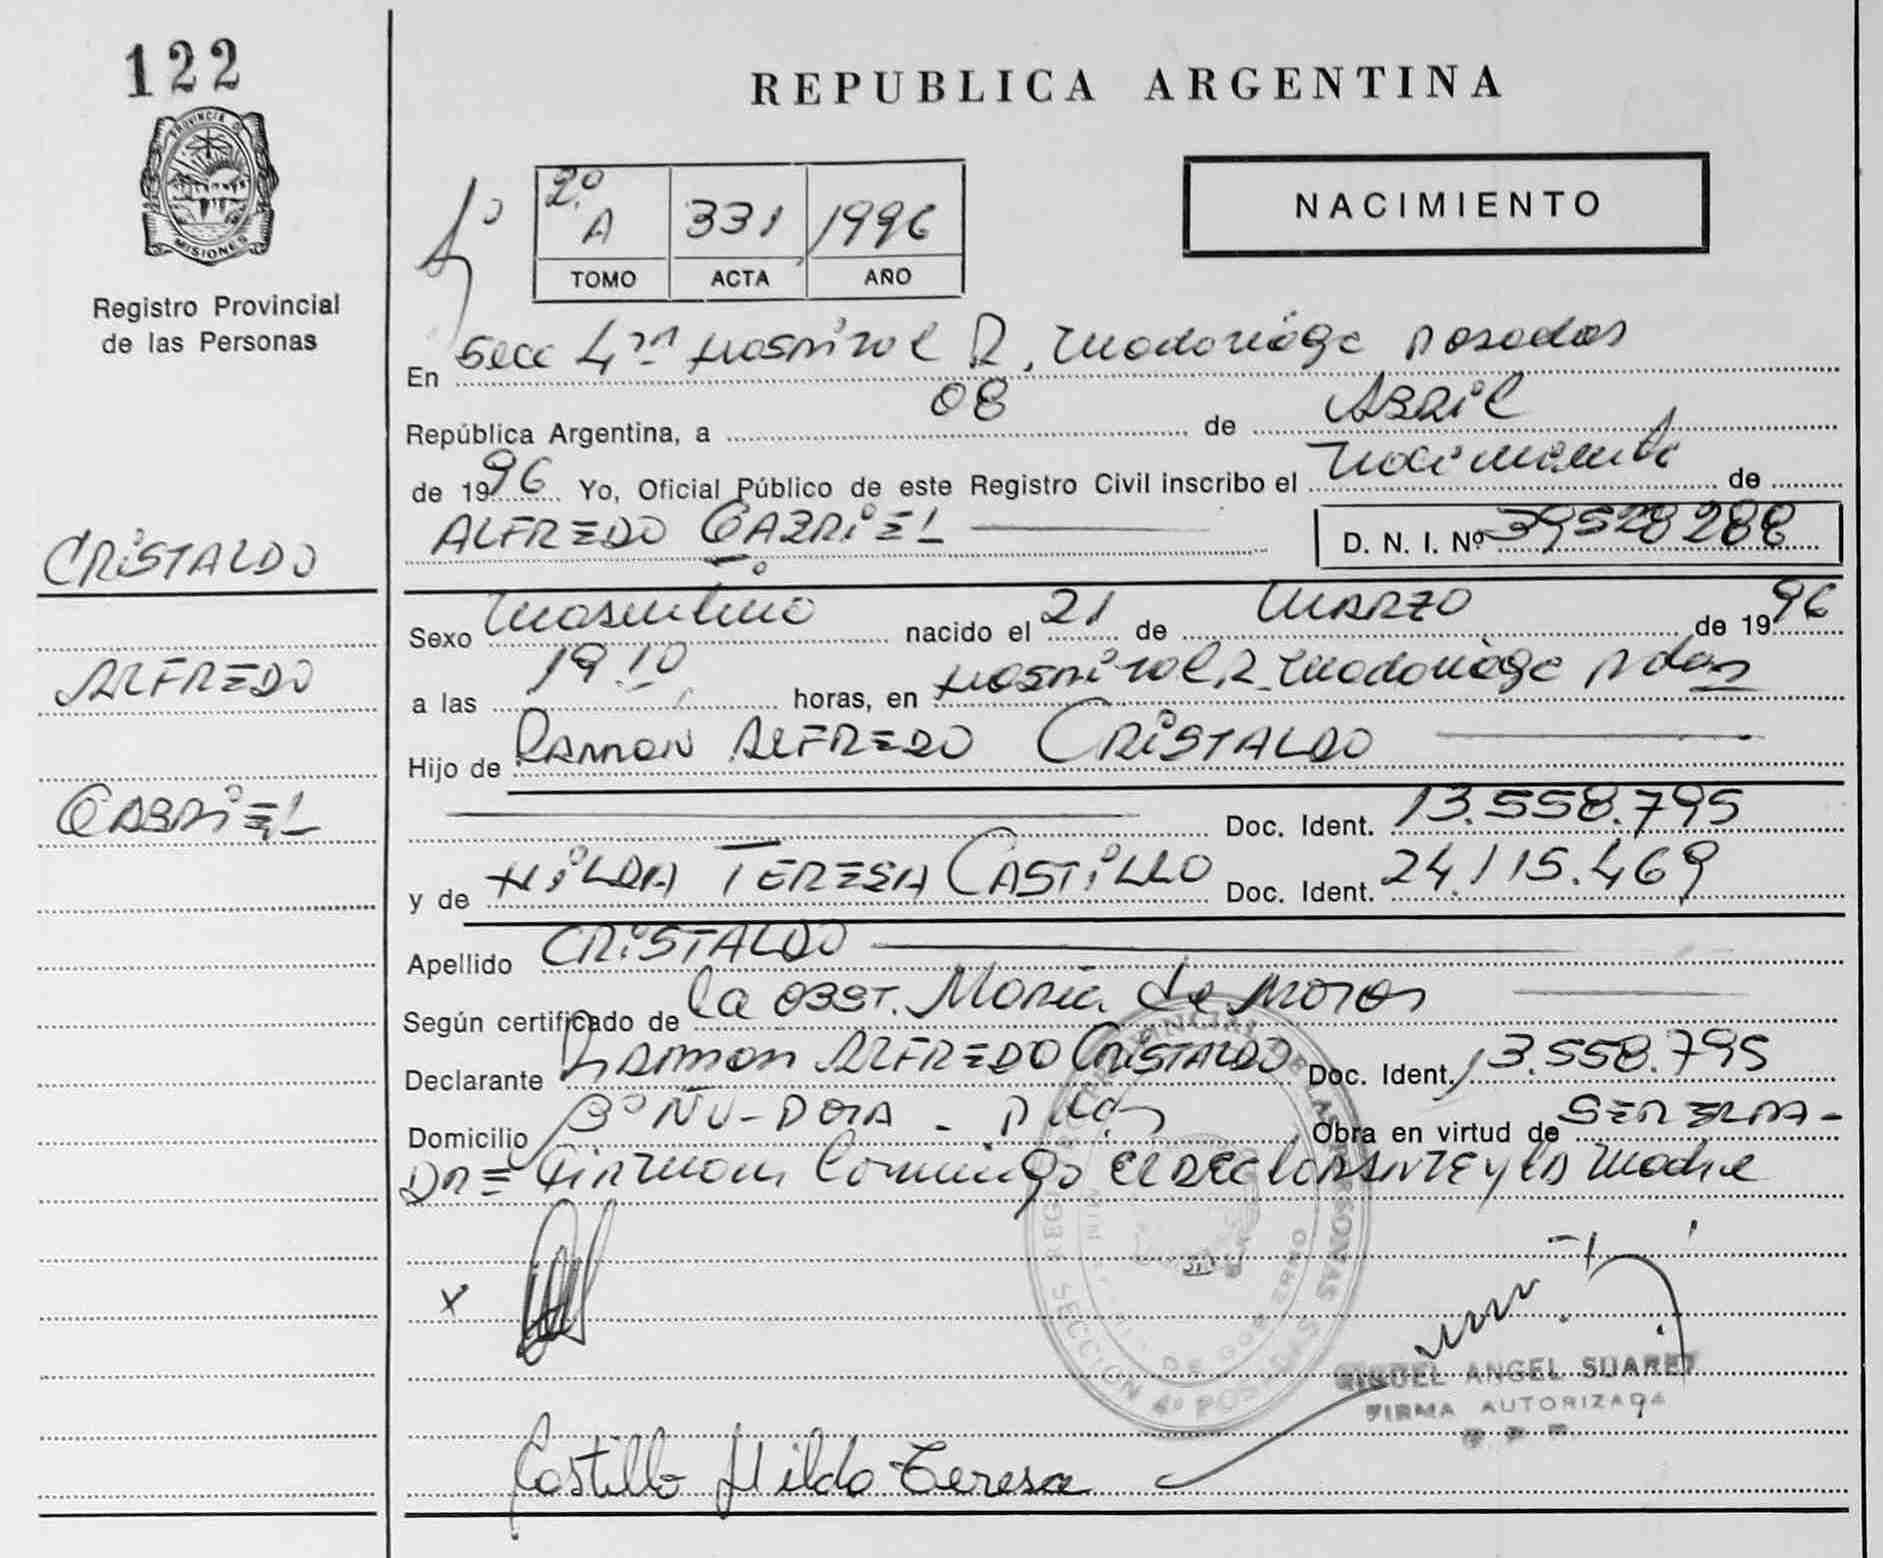 122
PROVINCIA DE
MISIONES
Registro Provincial
de las Personas
CRISTALDO
ALFREDO
GABRIEL
REPUBLICA ARGENTINA
NACIMIENTO
2º A 331 1996
TOMO ACTA AÑO
En Secc 4ta Hospital R. Madariaga Posadas
República Argentina, a 08 de ABRIL
de 1996 Yo, Oficial Público de este Registro Civil inscribo el Nacimiento de
ALFREDO GABRIEL D. N. I. Nº 39528288
Sexo Masculino nacido el 21 de MARZO de 1996
a las 19.10 horas, en Hospital R. Madariaga Pdas
Hijo de RAMON ALFREDO CRISTALDO
Doc. Ident. 13.558.795
y de HILDA TERESA CASTILLO Doc. Ident. 24.115.469
Apellido CRISTALDO
Según certificado de la OBST. Maria de
Declarante RAMON ALFREDO CRISTALDO Doc. Ident. 13.558.795
Domicilio Bº ÑU-PORA - Pdas Obra en virtud de SER EL PA-
DRE Firman Conmigo el DECLARANTE y LA Madre
x
SECCION 4º POSADAS
MIGUEL ANGEL SUAREZ
FIRMA AUTORIZADA
Castillo Hilda Teresa